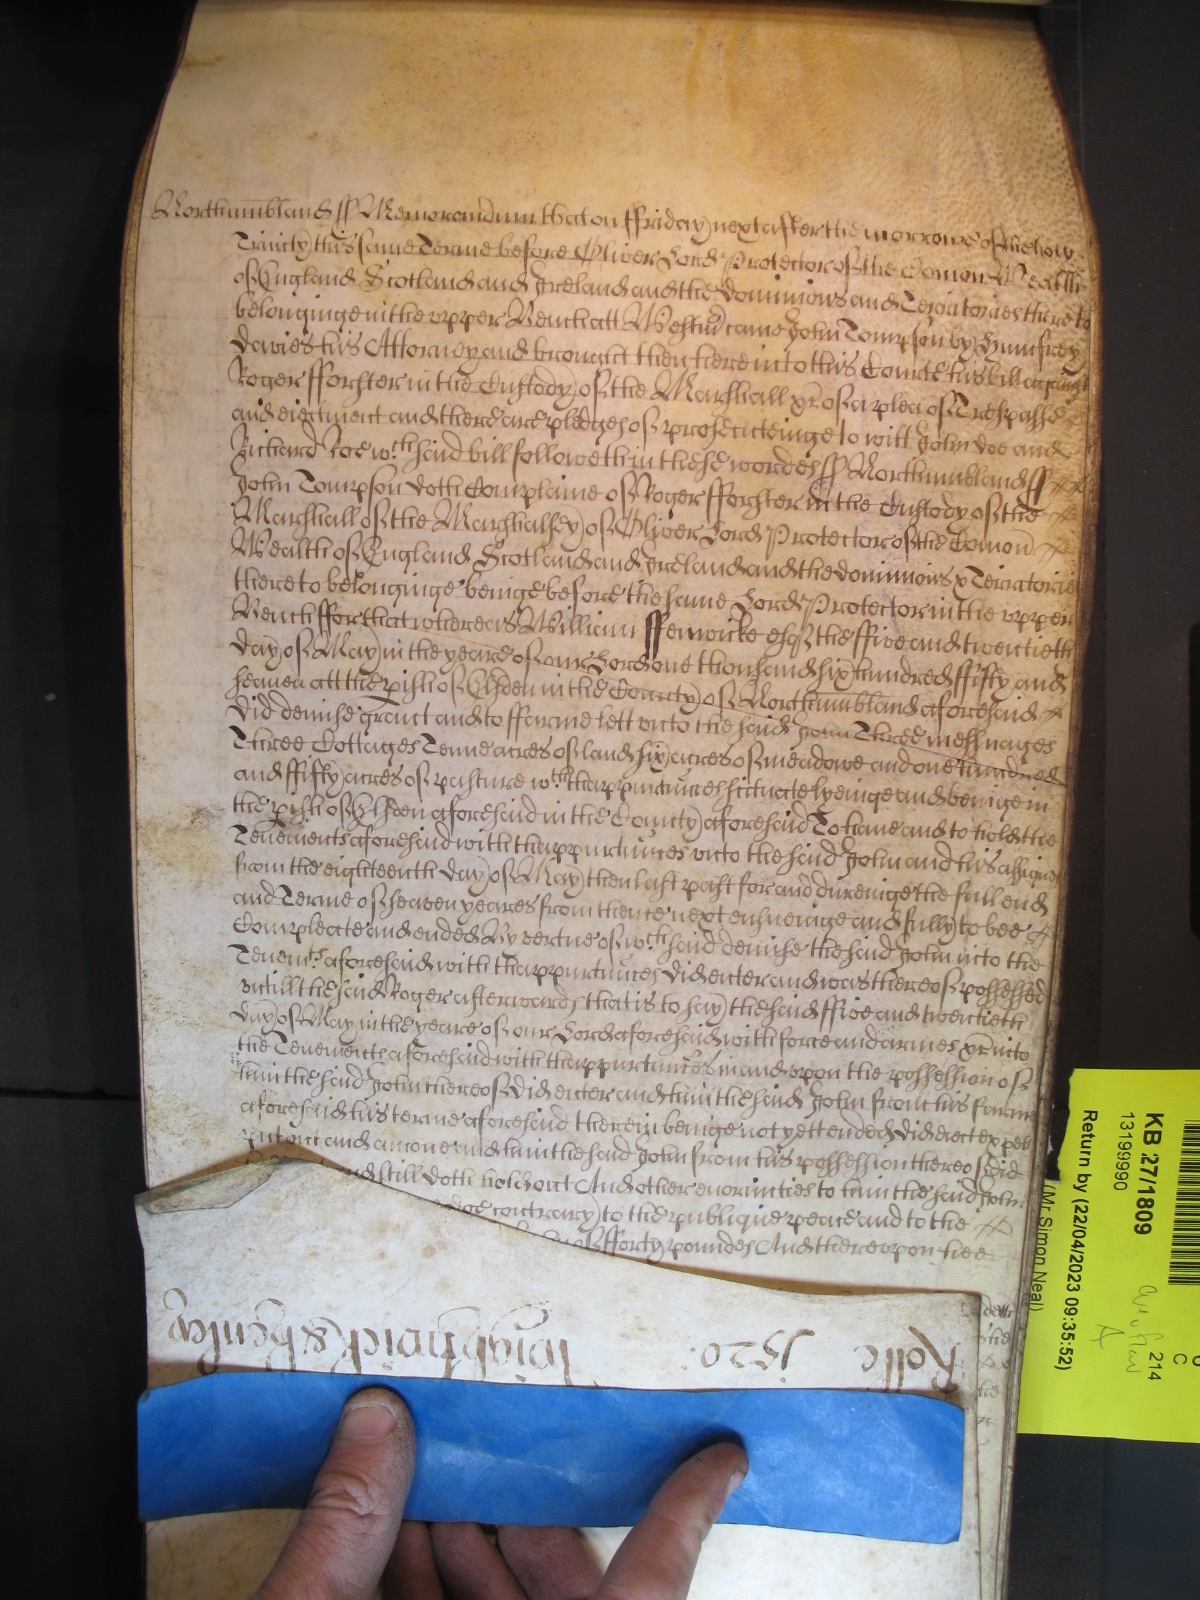 Northumbland ss Memorandum that on ffriday next after the morrowe of the holy
Trinity this same Terme before Oliver Lord Protector of the Comon Wealth
of England Scotland and Ireland and the dominions and Terratories thereto
belonginge in the upper Bench att Westmr came John Tompson by Humfrey
Davies his Attorney and brought then here into this Courte his bill against
Roger fforster in the Custody of the Marshall &c of a plea of Trespasse
and eiectment and there are pledges of prosecuteinge to witt John Doe and
Richard Roe wch said bill followeth in these wordes ss Northumbland ss
John Tompson doth Complaine of Roger fforster in the Custody of the
Marshall of the Marshalsey of Oliver Lord Protector of the Comon
Wealth of England Scotland and Ireland and the dominions & Terratories
thereto belonginge beinge before the same Lord Protector in the upper
Bench ffor that whereas William ffenwicke esqr the ffive and twentieth
day of May in the yeare of our Lord one thousand six hundred ffifty and
seaven att the pish of Elsden in the County of Northumbland aforesaid
did demise graunt and to ffarme lett unto the said John Three messuages
Three Cottages Tenne acres of land six acres of meadowe and one hundred
and ffifty acres of pasture wth thappurtnnces scituate lyeinge and beinge in
the pish of Elsden aforesaid in the County aforesaid To have and to hold the
Tenements aforesaid with thappurtnnces unto the said John and his assignes
from the eighteenth day of May then last past for and dureinge the full end
and Terme of seaven yeares from thence next ensueinge and fully to bee
Compleate and ended By vertue of wch said demise the said John into the
Tenemts aforesaid with thappurtnnces did enter and was thereof possessed
untill the said Roger afterwards that is to say the said ffive and twentieth
day of May in the yeare of our Lord aforesaid with force and armes &c into
the Tenements aforesaid with thappurtnnces in and upon the possession of
him the said John thereof did enter and him the said John from his farme
aforesaid his terme aforesaid therein beinge not yett ended did eiect expell
putt out and amove and him the said John from his possession thereof did
and still doth hold out And other enormities to him the said John
contrary to the publique peace and to the
of fforty poundes And thereupon hee
Rolle 1520:
KB 27/1809
13199990
Return by (22/04/2023 09:35:52)
(Mr Simon Neal)
214
C
A